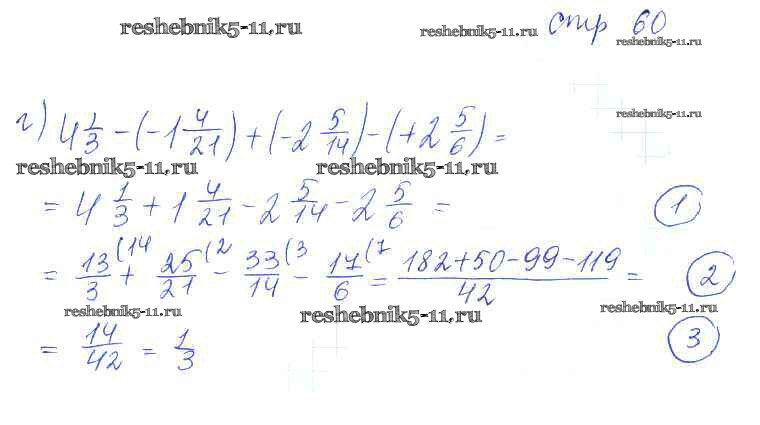 reshebnik5-11.ru reshebnik5-11.ru стр 60
reshebnik5-11.ru
reshebnik5-11.ru
г) 4 1/3 - (-1 4/21) + (-2 5/14) - (+2 5/6) =
reshebnik5-11.ru reshebnik5-11.ru
= 4 1/3 + 1 4/21 - 2 5/14 - 2 5/6 = 1
= 13/3 (14 + 25/21 (2 - 33/14 (3 - 17/6 (7 = 182+50-99-119/42 = 2
reshebnik5-11.ru reshebnik5-11.ru reshebnik5-11.ru
= 14/42 = 1/3 3